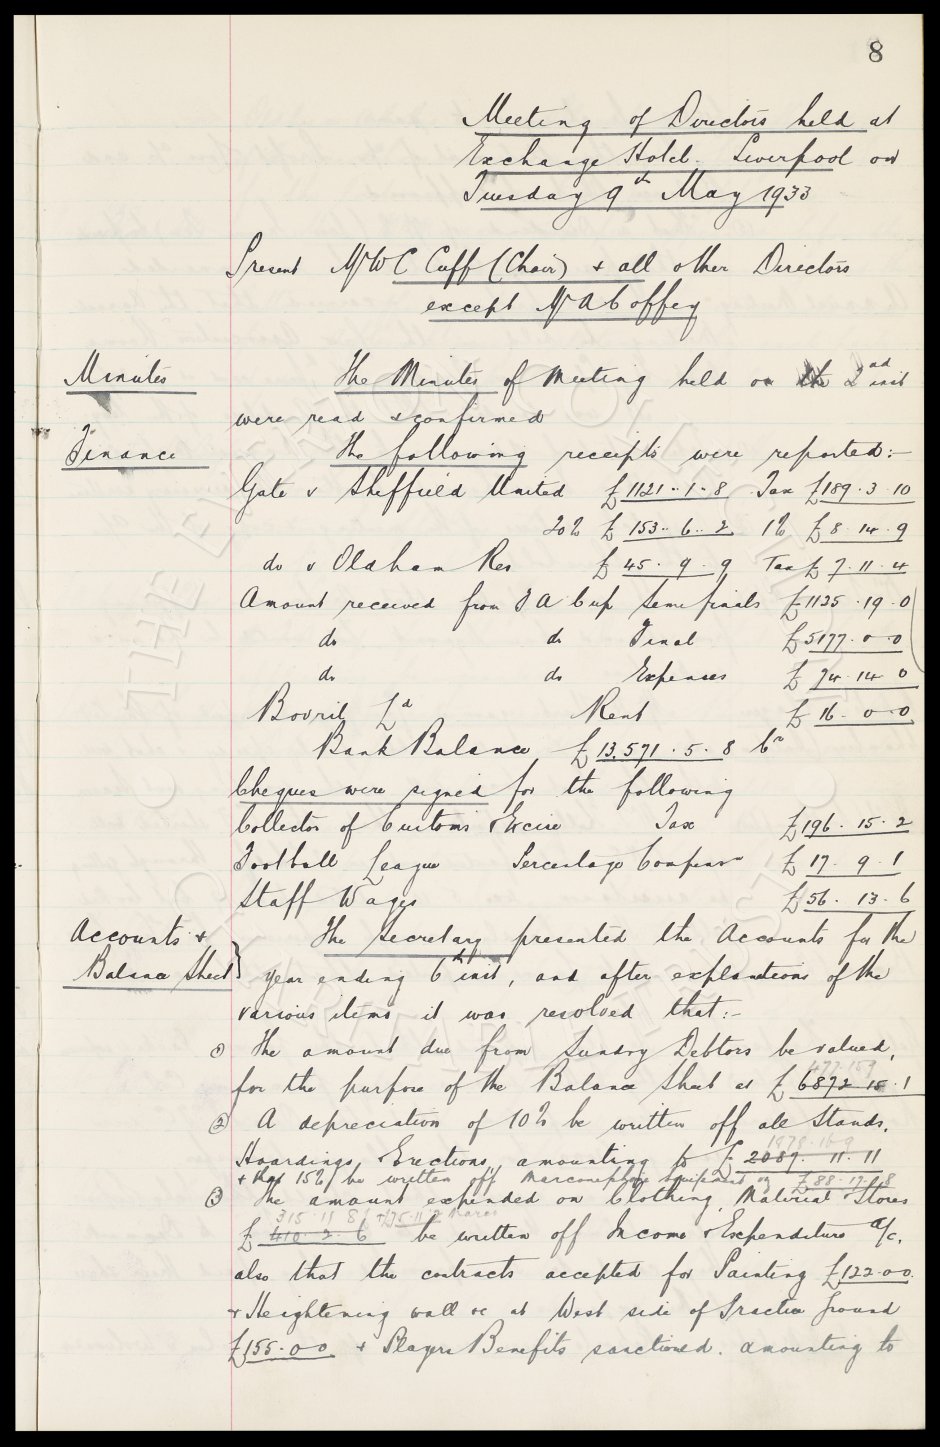 8
Meeting of Directors held at
Exchange Hotel. Liverpool on
Tuesday 9th May 1933
Present Mr W C Cuff (Chair) & all other Directors
except Mr A Coffey
Minutes
The Minutes of Meeting held on 2nd inst
were read & confirmed
Finance
The following receipts were reported:-
Gate v Sheffield United £1121-1-8 Tax £189.3.10
20% £153-6-2 1% £8.14.9
do v Oldham Res £45.9.9 Tax £7.11.4
Amount received from F A Cup Semi finals £1125.19.0
do do Final £5177.0.0
do do Expenses £74.14.0
Bovril Ld Rent £16.0.0
Bank Balance £13,571.5.8 Cr
Cheques were signed for the following
Collector of Customs & Excise Tax £196.15.2
Football League Percentage Compensn £17.9.1
Staff Wages £56.13.6
Accounts &
Balance Sheet
The Secretary presented the Accounts for the
year ending 6th inst, and after explanations of the
various items it was resolved that:-
① The amount due from Sundry Debtors be valued,
for the purpose of the Balance Sheet at £6872.15.1
② A depreciation of 10% be written off all Stands,
Hoardings, Erections, amounting to £2089.11.11
1878.16.9
+ that 15% be written off Marconiphone Equipment £88.17.8
③ The amount expended on Clothing, Material & Stores
315.11.8
£410.2.6 be written off Income & Expenditure a/c,
also that the contracts accepted for Painting £122.0.0.
& Heightening wall &c at West side of Practice Ground
£155.0.0 & Players Benefits sanctioned. amounting to